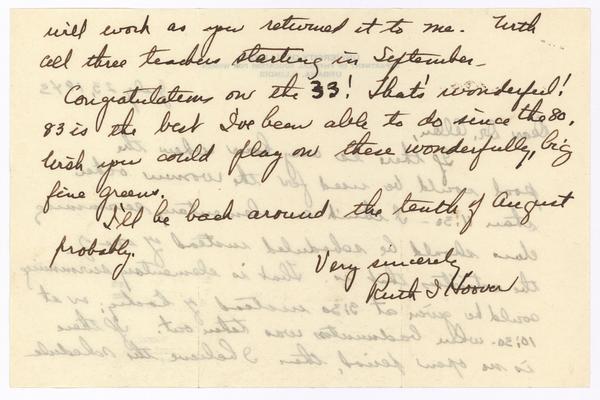 will work as you returned it to me. With
all three teachers starting in September.
Congratulations on the 33! That's wonderful!
83 is the best I've been able to do since the 80.
Wish you could play on these wonderfully, big
fine greens.
I'll be back around the tenth of August
probably.
Very sincerely
Ruth I Hoover